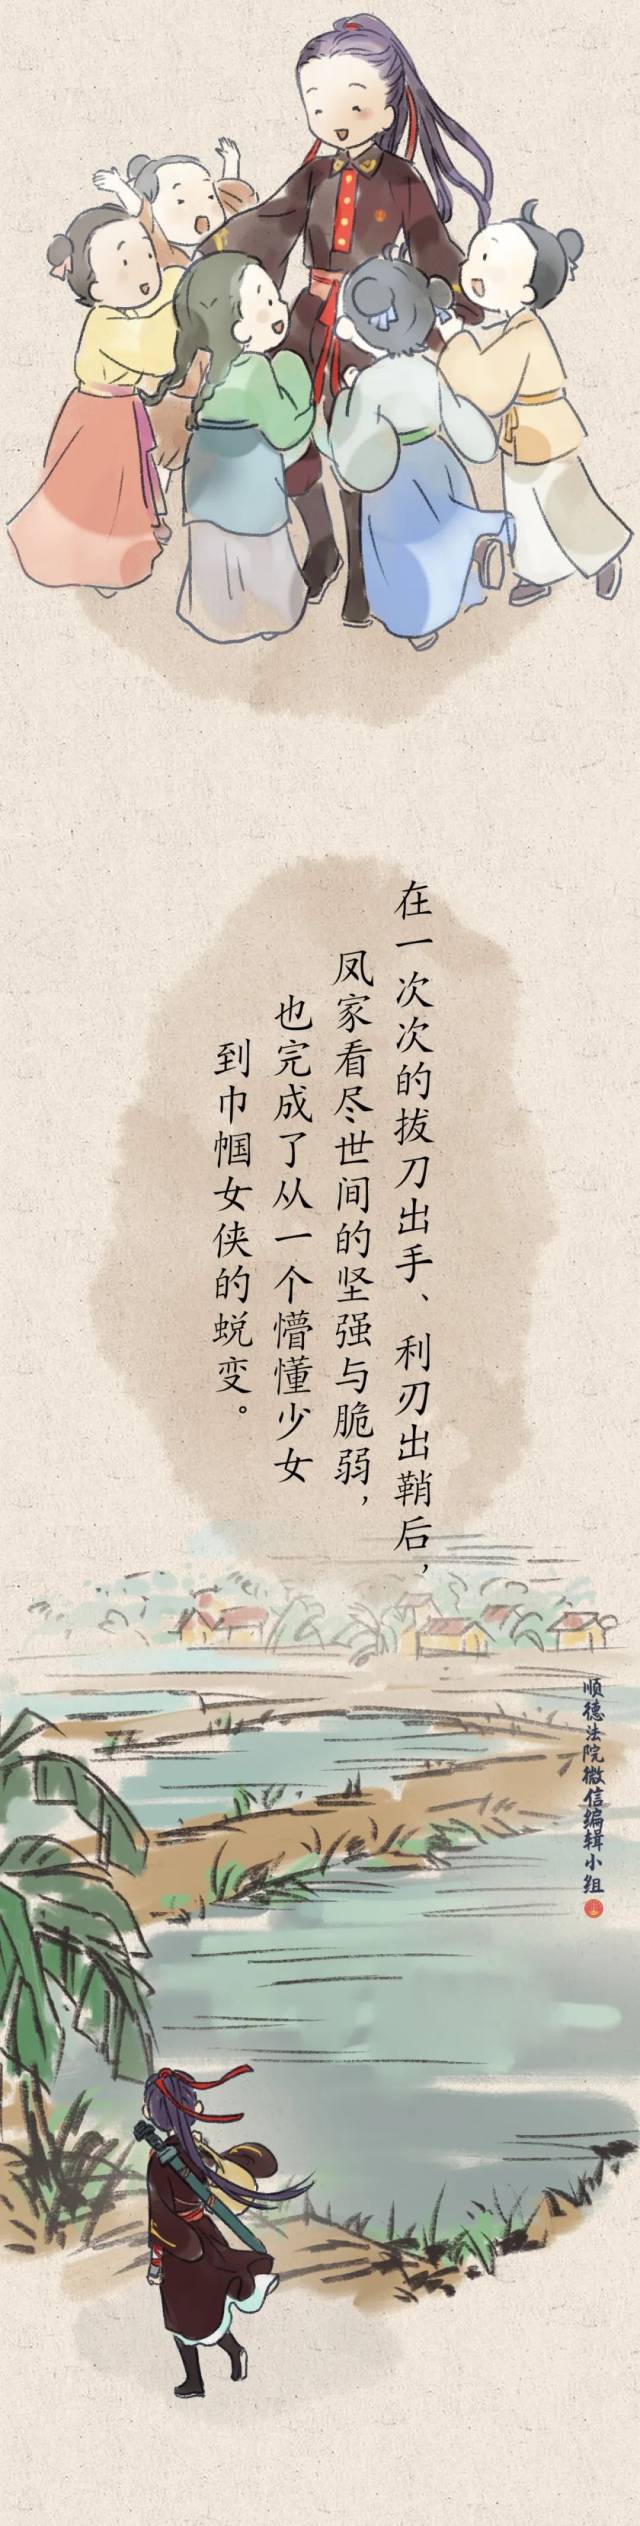 在一次次的拔刀出手、利刃出鞘后，
凤家看尽世间的坚强与脆弱，
也完成了从一个懵懂少女
到巾帼女侠的蜕变。
顺德法院微信编辑小组